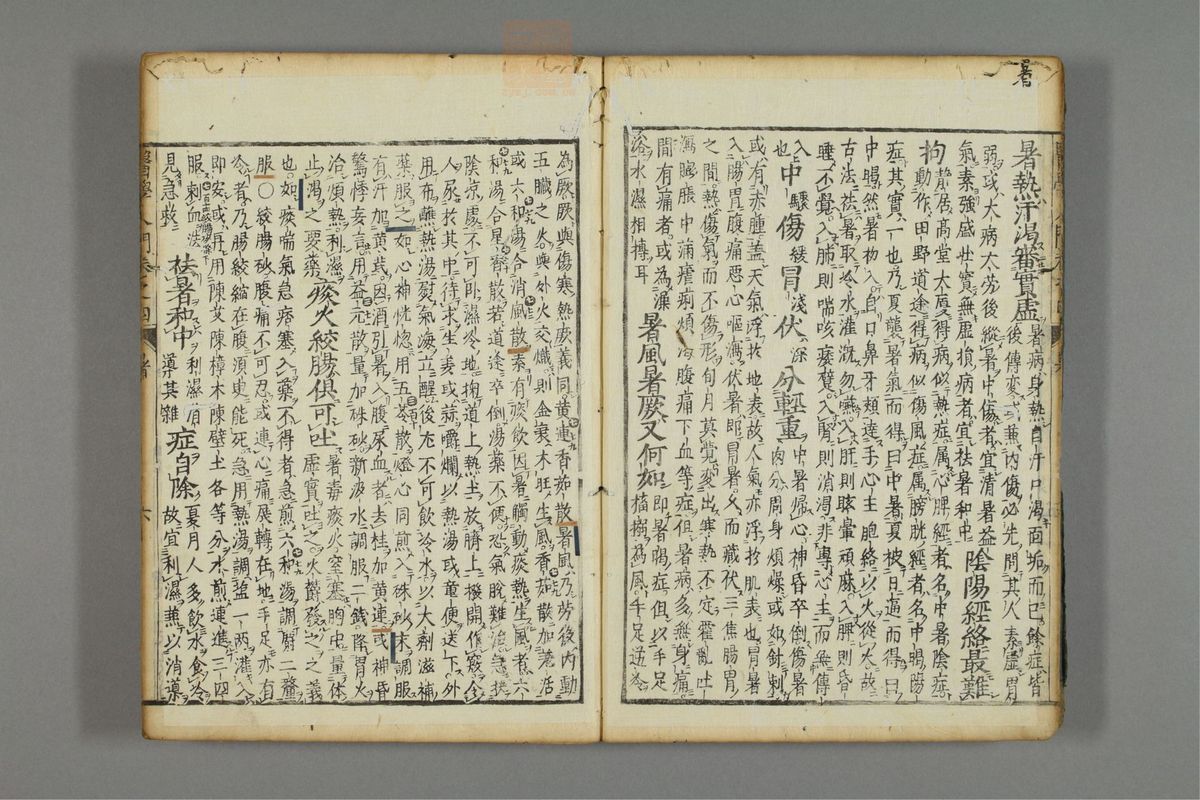 暑
暑熱汗渴審實虛暑病身熱自汗口渴面垢而已餘症皆後傳變或兼內傷必先問其人素虛胃
弱或大病大勞後縱暑中傷者宜清暑益
氣素強盛壯實無虛損病者宜祛暑和中陰陽經絡最難
拘靜居高堂大厦得病似熱症属心脾經者名中暑陰症
動作田野道途得病似傷風症属膀胱經者名中暍陽
症其實一也乃夏龍暑氣而得日中暑夏被日逼而得曰
中暍然暑初入自口鼻牙頰達手心主胞絡以火從火故
古法祛暑取冷水灌溉勿嚥入肝則眩暈頑麻入脾則昏
睡不覺入肺則喘咳痿躄入腎則消渴非專心主而無傳
入也中驟傷緩冐淺伏深分輕重中暑歸心神昏卒倒傷暑肉分周身煩燥或如針刺
或有赤腫盖天氣浮於地表故人氣亦浮於肌表也冒暑
入腸胃腹痛惡心嘔瀉伏暑即冒暑久而藏伏三焦腸胃
之間熱傷氣而不傷形旬月莫覺變出寒熱不定霍亂吐
瀉膨脹中滿瘧痢煩渴腹痛下血等症但暑病多無身痛
間有痛者或為澡
浴水濕相搏耳暑風暑厥又何如即暑暍症但以手足搐搦為風手足逆冷
為厥厥與傷寒熱厥義同黃連香茹散暑風乃勞後內動
五臟之火與外火交熾則金衰木旺生風香茹散加羌活
或六和湯合消風散素有痰飲因暑觸動痰熱生風者六
和湯合星香散若道途卒倒湯藥不便恐氣脫難治急扶
陰凉處不可卧濕冷地掬道上熱土放臍上撥開作竅令
人尿於其中待求生姜或蒜嚼爛以熱湯或童便送下外
用布蘸熱湯熨氣海立醒後尤不可飲冷水以大劑滋補
藥服之如心神恍惚用五苓散燈心同煎入硃砂末調服
有汗加黃芪因酒引暑入腹尿血者去桂加黃連或神昏
驚悸妄言用益元散量加硃砂新汲水調服二錢降胃火
治煩熱利濕
止渴之要藥痰火絞腸俱可吐暑毒痰火窒塞胸中量体虛實吐之火鬱發之之義
也如痰喘氣急痞塞入藥不得者急煎六和湯調麝二釐
服〇絞腸痧脹痛不可忍或連心痛展轉在地手足亦有
冷者乃腸絞縮在腹須臾能死急用熱湯調盐一两灌入
即安或再用陳艾陳樟木陳壁土各等分水煎連進三四
服刺血法
見急救祛暑和中利濕胃導其雜症自除夏月人多飲水食冷故宜利濕兼以消導